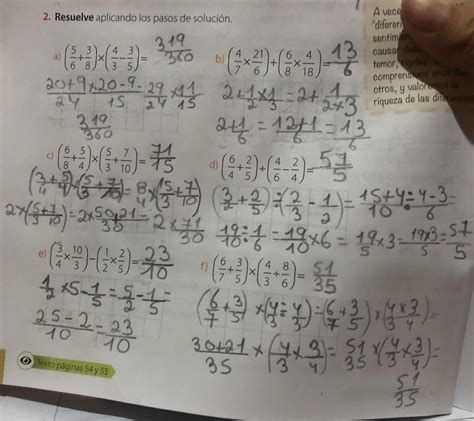 2. Resuelve aplicando los pasos de solución.
A vece
"diferen
sentimie
causar
temor,
comprens
otros, y valoremos la
riqueza de las diferen
a) (5/6 + 3/8) × (4/3 − 3/5) = 319/360
20+9/24 × 20−9/15 = 29/24 × 11/15
319/360
b) (4/7 × 21/6) + (6/8 × 4/18) = 13/6
2 + 1/2 × 1/3 = 2 + 1/2×3
2+1/6 = 12+1/6 = 13/6
c) (6/8 + 5/4) × (5/3 + 7/10) = 71/15
(3/4 + 5/4) × (5/3 + 7/10) = 8/4 × (5/3 + 7/10)
2 × (5/3 + 7/10) = 2 × 50+21/30 = 2 × 71/30
d) (6/4 + 2/5) ÷ (4/6 − 2/4) = 57/5
(3/2 + 2/5) ÷ (2/3 − 1/2) = 15+4/10 ÷ 4−3/6
19/10 ÷ 1/6 = 19/10 × 6 = 19/5 × 3 = 19×3/5 = 57/5
e) (3/4 × 10/3) − (1/2 × 2/5) = 23/10
1/2 × 5 − 1/5 = 5/2 − 1/5 =
25−2/10 = 23/10
f) (6/7 + 3/5) × (4/3 ÷ 8/6) = 51/35
(6/7 + 3/5) × (4/3 ÷ 4/3) = (6/7 + 3/5) × (4×3/3 4) =
30+21/35 × (4/3 × 3/4) = 51/35 × (4/3 × 3/4) =
51/35
Texto páginas 54 y 55